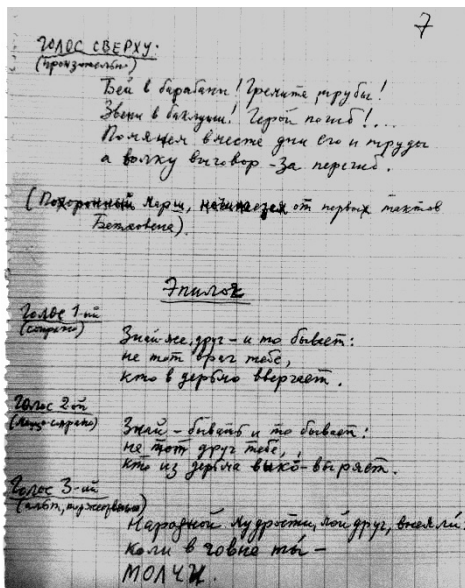 7
ГОЛОС СВЕРХУ:
(пронзительно)
Бей в барабаны! Гремите, трубы!
Звени в баклуши! Герой погиб!...
Помянем вместе дни его и труды
а волку выговор – за перегиб.
(Похоронный марш, начинаезея от первых тактов
Бетховена).
Эпилог
Голос 1-ый
(сопрано)
Знай же, друг – и то бывает:
не тот враг тебе,
кто в дерьмо ввергает.
Голос 2-ой
(меццо-сопрано)
Знай – бывать и то бывает:
не тот друг тебе,
кто из дерьма выко-выряет.
Голос 3-ий
(альт, торжественно)
Народной мудрости, мой друг, внемли:
коли в говне ты –
МОЛЧИ.